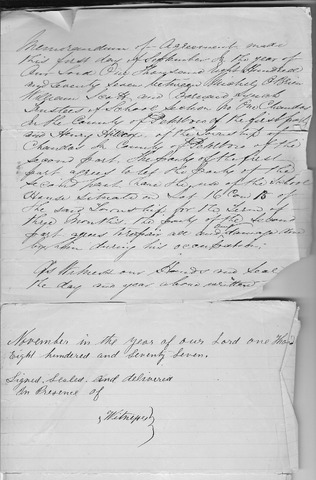 Memorandum of Agreement made
this first day of September in the year of
our Lord One Thousand eight Hundred
and Seventy Seven between Michael O'Brien
William Scott and Edward
Trustees of School Section No One Chandos
in the County of Peterboro of the first part
and Henry of the Township of
Chandos in County of Peterboro of the
Second part. The party of the first
part agrees to let the party of the
Second part have the use of the School
House Situated on Lot 16 Con 13 of
the said Township for the term of
three months the party of the Second
part agrees to repair all and damage done
by him during his occupation.
As Witness our Hands and Seal
the day and year above written
November in the year of our Lord one Thous
Eight hundred and seventy seven.
Signed, Sealed, and delivered
In Presence of
Witness